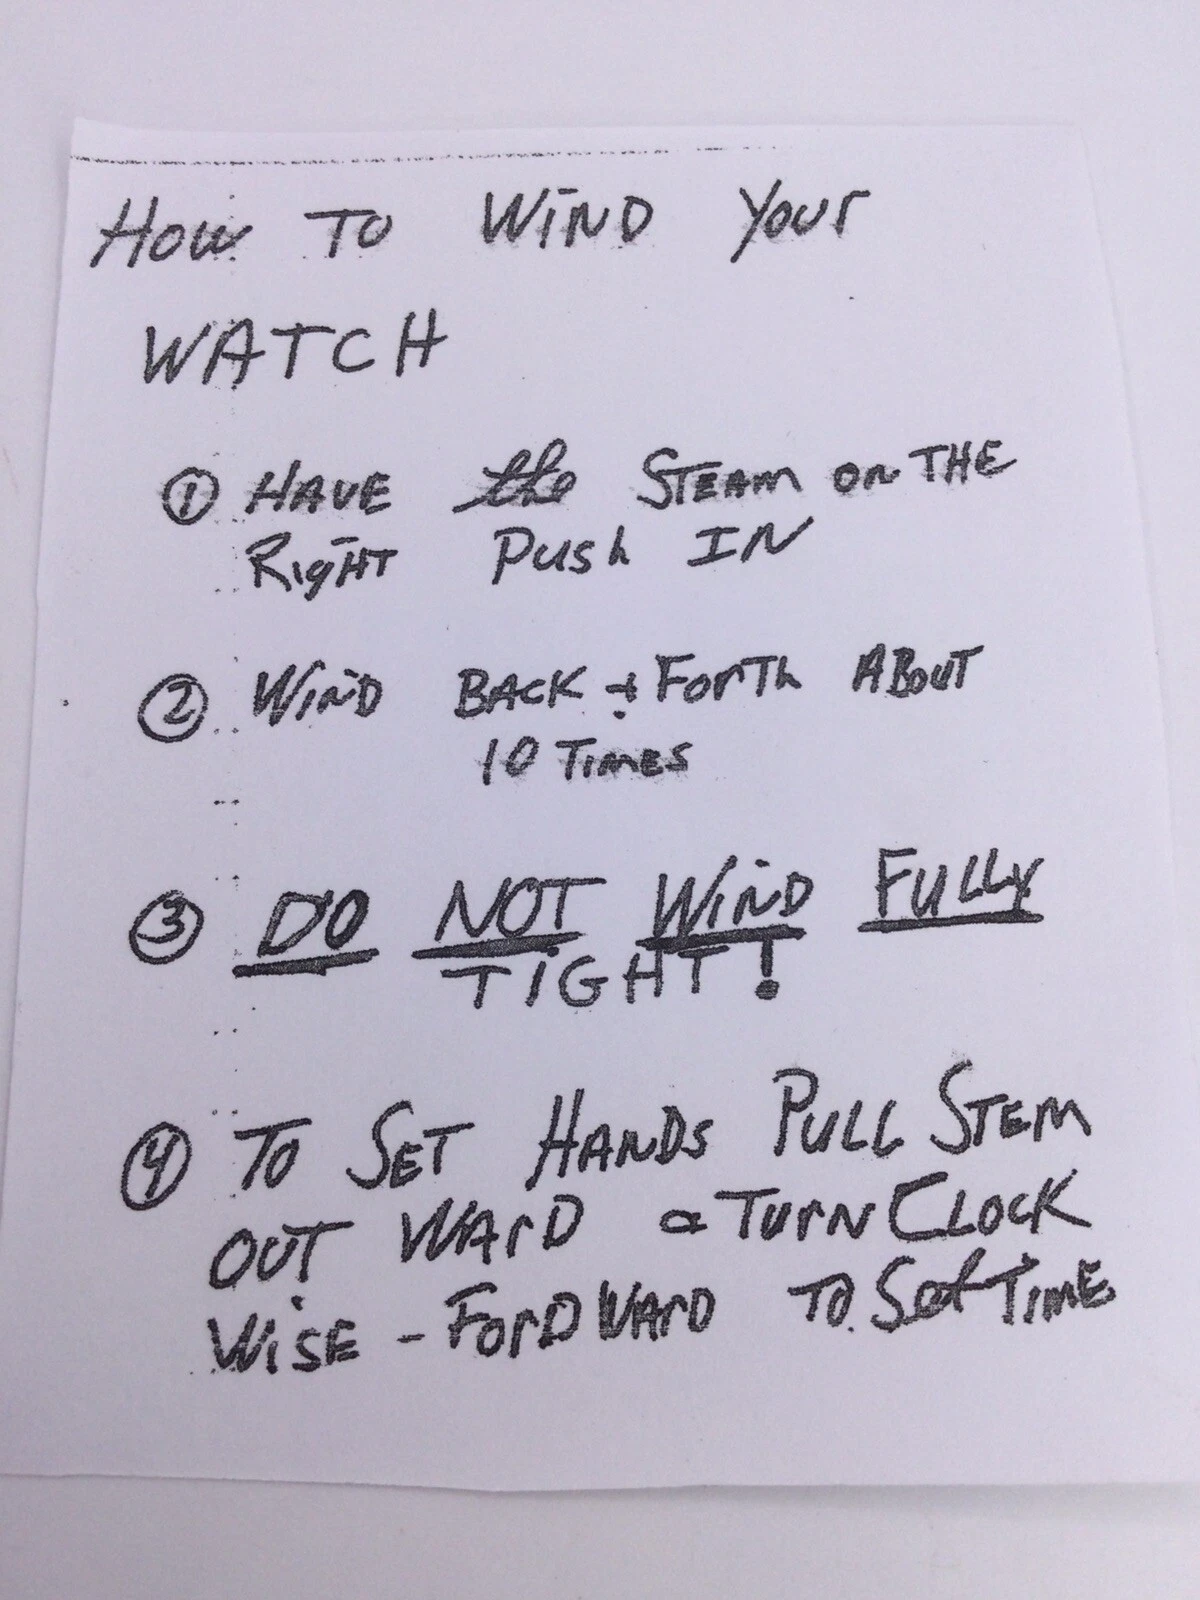 How TO WIND Your
WATCH
① HAVE the STEAM ON THE
RigHT Push IN
② WIND BACK + ForTh ABOUT
10 TIMES
③ DO NOT WIND FULLY
TIGHT!
④ TO SET HANDS PULL STEM
OUT WArD a TUrN CLOCK
WISE - ForDWArD TO Set TIME